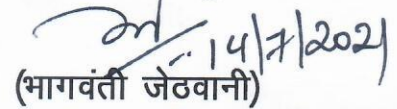 14/7/2021
(भागवंती जेठवानी)